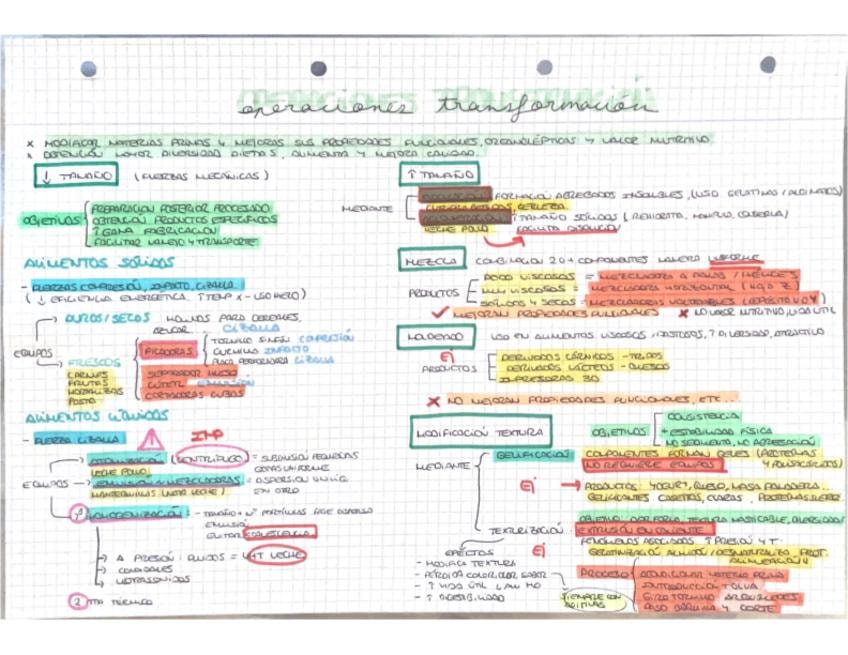 operaciones transformación
x MODIFICAR MATERIAS PRIMAS Y MEJORAR SUS PROPIEDADES FUNCIONALES, ORGANOLÉPTICAS Y VALOR NUTRITIVO
x OBTENCIÓN MAYOR DIVERSIDAD DIETAS, AUMENTA Y MEJORA CALIDAD.
↓ TAMAÑO (FUERZAS MECÁNICAS)
OBJETIVOS
PREPARACIÓN POSTERIOR PROCESADO
OBTENCIÓN PRODUCTOS ESPECÍFICOS
↑ GAMA FABRICACIÓN
FACILITAR MANEJO Y TRANSPORTE
ALIMENTOS SÓLIDOS
- FUERZAS COMPRESIÓN, IMPACTO, CIZALLA
(↓ EFICIENCIA ENERGÉTICA, ↑ TEMP X
DUROS/SECOS MOLINOS PARA CEREALES,
AZÚCAR CIZALLA
EQUIPOS
FRESCOS
CARNES
FRUTAS
HORTALIZAS
PASTA
PICADORAS
TORNILLO SINFÍN COMPRESIÓN
CUCHILLO IMPACTO
PLACA PERFORADA CIZALLA
SEPARADOR HUESO
CUTTER EMULSIÓN
CORTADORAS CUBOS
ALIMENTOS LÍQUIDOS
- FUERZA CIZALLA IMP
EQUIPOS
ATOMIZACIÓN (CENTRÍFUGO) = SUBDIVISIÓN PEQUEÑAS
LECHE POLVO GOTAS UNIFORME
EMULSIÓN Y MEZCLADORAS = DISPERSIÓN UN LÍQ
MANTEQUILLAS (NATA LECHE) EN OTRO
1 HOMOGENIZACIÓN - TAMAÑO + Nº PARTÍCULAS FASE DISPERSA
EMULSIÓN
EVITAR COALESCENCIA
→ A PRESIÓN: FLUIDOS = LECHE
→ COLOIDALES
→ ULTRASONIDOS
2 TTO TÉRMICO
↑ TAMAÑO
MEDIANTE
FORMACIÓN AGREGADOS INSOLUBLES, (USO GELATINAS / ALGINATOS)
CERVEZA
↑ TAMAÑO SÓLIDOS
LECHE POLVO FACILITA DISOLUCIÓN
MEZCLA COMBINACIÓN 2 O + COMPONENTES MANERA UNIFORME
PRODUCTOS
POCO VISCOSOS = MEZCLADORA A PALAS / HÉLICES
MUY VISCOSOS = MEZCLADORA HORIZONTAL (HOJA Z)
SÓLIDOS Y SECOS = MEZCLADORAS VOLTEABLES (DEPÓSITO V O Y)
✓ MEJORAN PROPIEDADES FUNCIONALES ✗ NO VALOR NUTRITIVO, VIDA ÚTIL
MOLDEADO USO EN ALIMENTOS VISCOSOS / PASTOSOS, ↑ DIVERSIDAD, ATRACTIVO
Ej
PRODUCTOS
DERIVADOS CÁRNICOS - TODOS
DERIVADOS LÁCTEOS - QUESOS
IMPRESORAS 3D
✗ NO MEJORAN PROPIEDADES FUNCIONALES, ETC...
MODIFICACIÓN TEXTURA
OBJETIVOS
CONSISTENCIA
+ ESTABILIDAD FÍSICA
NO SEGMENTA, NO AGREGACIÓN
MEDIANTE
GELIFICACIÓN COMPONENTES FORMAN GELES (PROTEÍNAS
NO REQUIERE EQUIPOS Y POLISACÁRIDOS)
Ej → PRODUCTOS: YOGURT, QUESO, MASA PANADERA
TEXTURIZACIÓN
EXTRUSIÓN EN CALIENTE
FENÓMENOS ASOCIADOS ↑ PRESIÓN Y T.
Ej GELATINIZACIÓN ALMIDÓN /
EFECTOS
- MODIFICA TEXTURA
- PÉRDIDA COLOR, OLOR SABOR
- ↑ VIDA ÚTIL
- ↑ DIGESTIBILIDAD
SIEMPRE CON ADITIVAS
PROCESO
ACONDICIONAR MATERIA PRIMA
INTRODUCCIÓN TOLVA
GIRO TORNILLO
PASO BOQUILLA Y CORTE